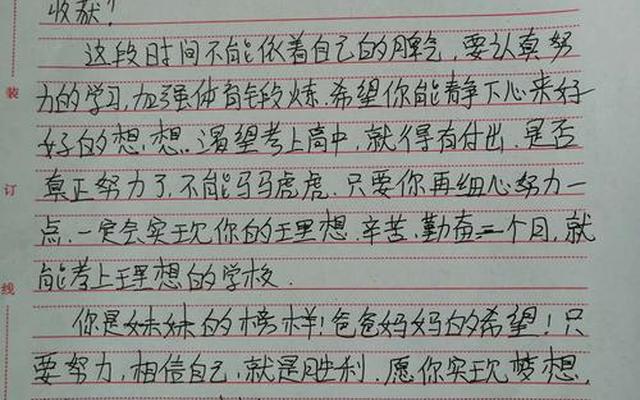 收获!
这段时间不能依着自己的脾气,要认真努
力的学习,加强体育锻炼.希望你能静下心来好
好的想,想.渴望考上高中,就得有付出.是否
真正努力了,不能马马虎虎.只要你再细心努力一
点.一定会实现你的理想.辛苦.勤奋一个月,就
能考上理想的学校.
你是妹妹的榜样!爸爸妈妈的希望!只
要努力,相信自己,就是胜利.愿你实现梦想.
装
订
线